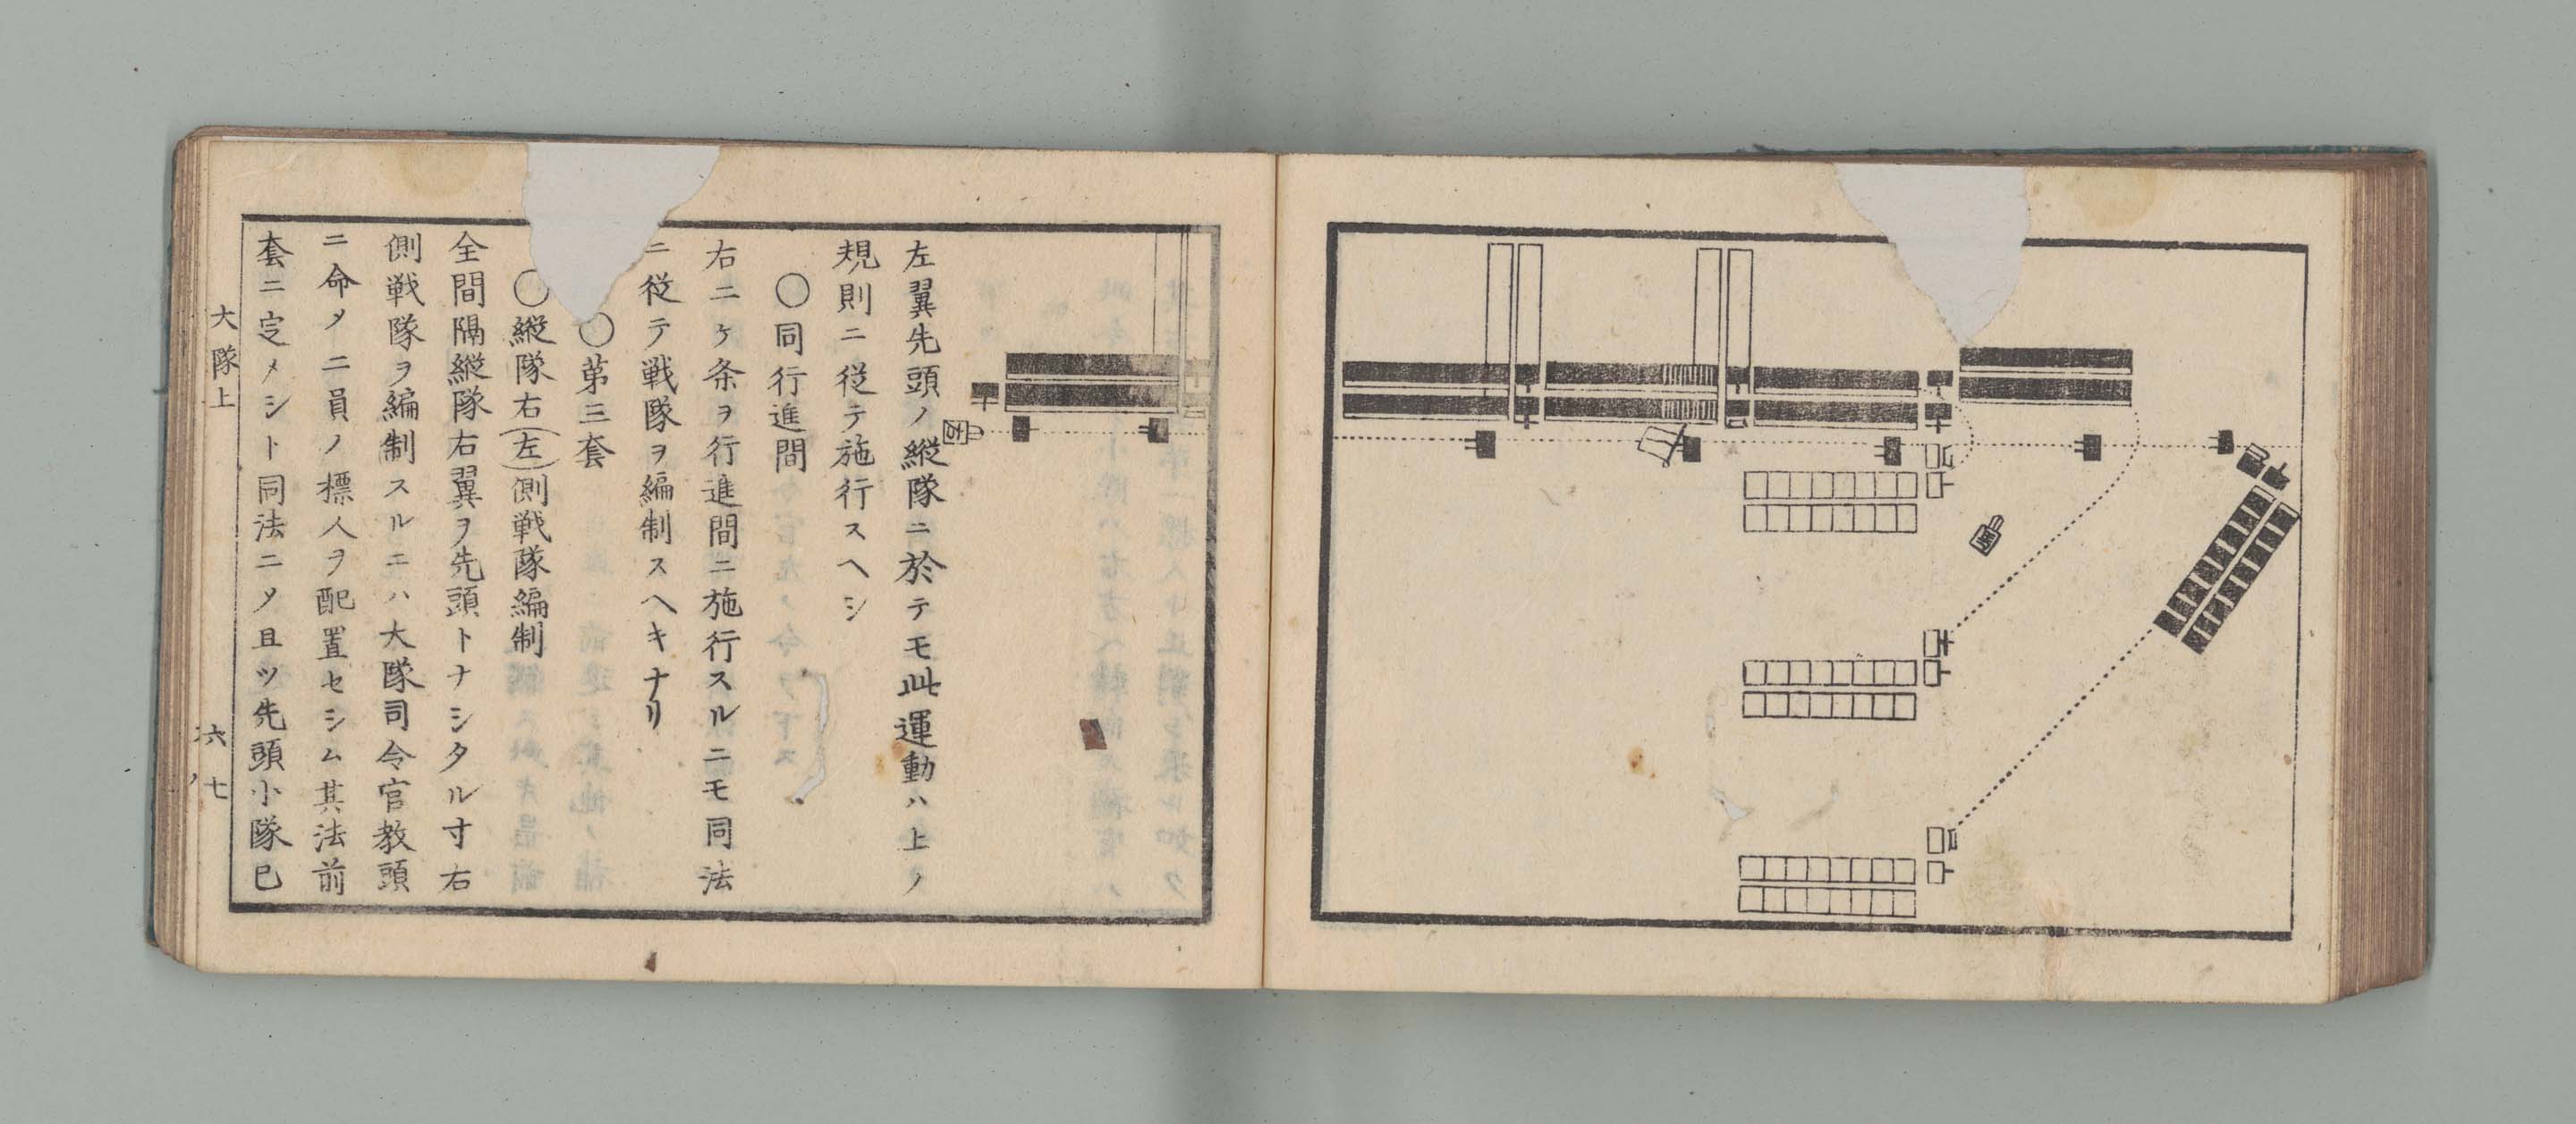 左翼先頭ノ縦隊ニ於テモ此運動ハ上ノ
規則ニ従テ施行スヘシ
〇同行進間
右ニケ条ヲ行進間ニ施行スルニモ同法
ニ従テ戦隊ヲ編制スヘキナリ
〇第三套
〇縦隊右(左)側戦隊編制
全間隔縦隊右翼ヲ先頭トナシタル寸右
側戦隊ヲ編制スルニハ大隊司令官教頭
ニ命メ二員ノ標人ヲ配置セシム其法前
套ニ定メシト同法ニメ且ツ先頭小隊已
大隊上
六ノ七